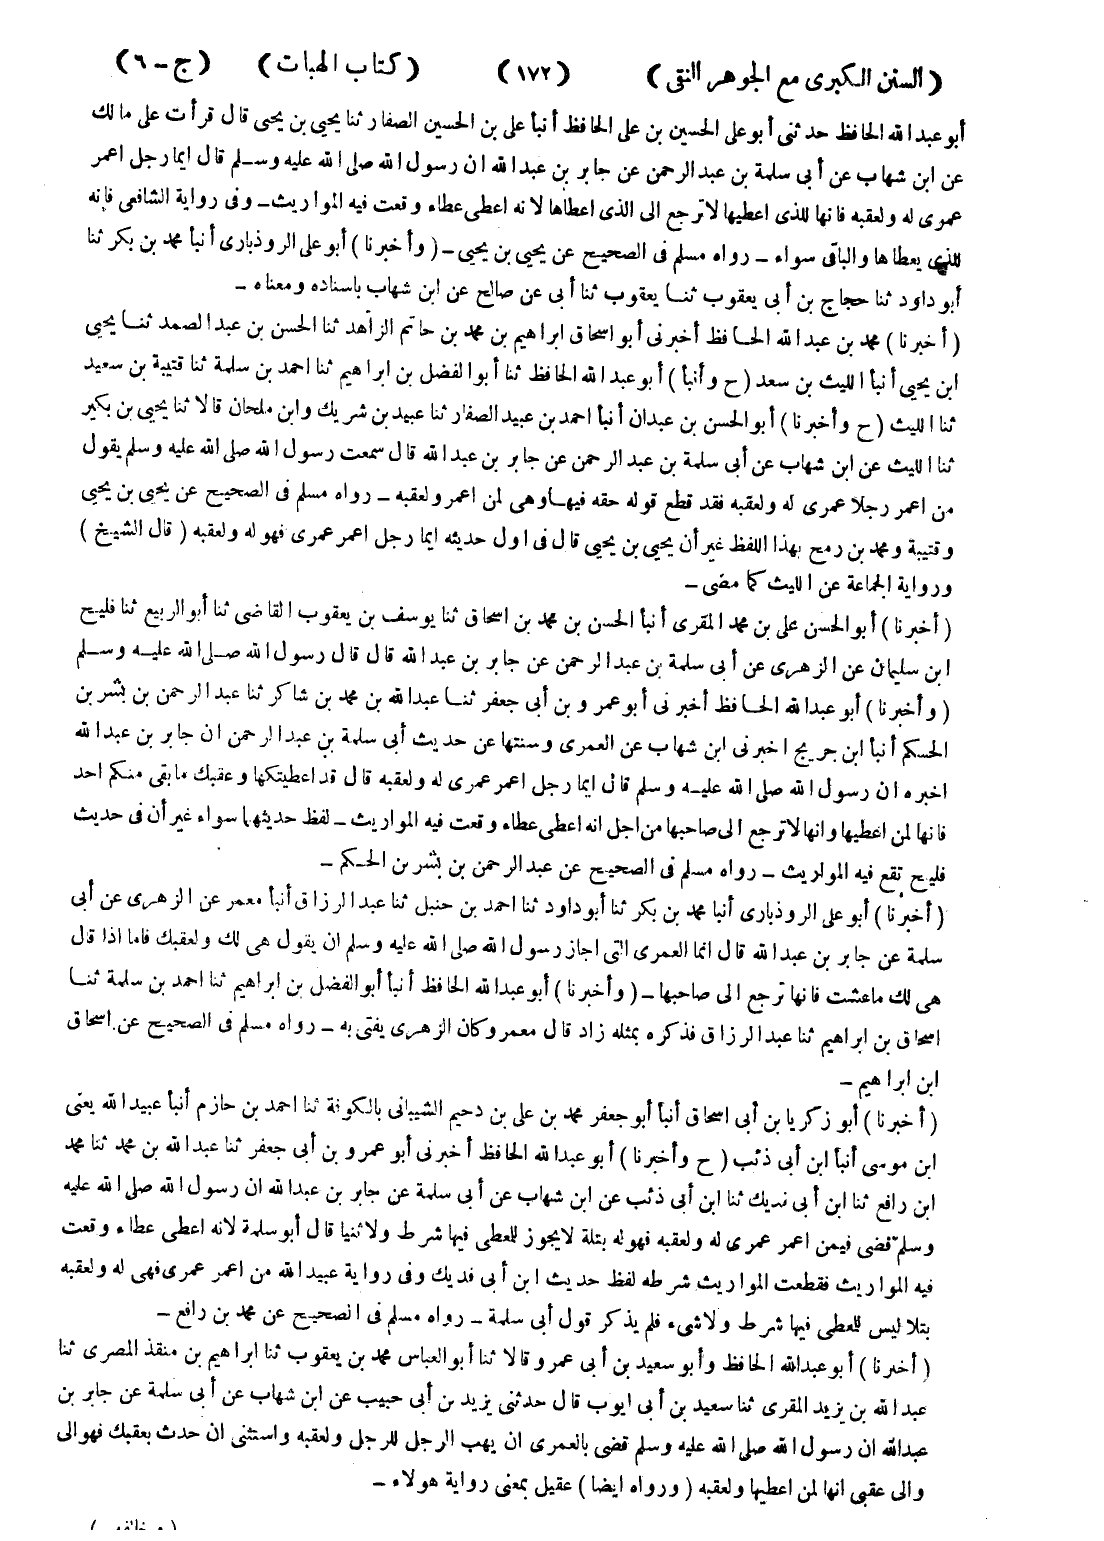 (السنن الكبرى مع الجوهر النقى) (١٧٢) (كتاب الهبات) (ج - ٦)
أبو عبد الله الحافظ حدثنى أبو على الحسين بن على الحافظ أنبأ على بن الحسين الصفار ثنا يحيى بن يحيى قال قرأت على مالك
عن ابن شهاب عن أبى سلمة بن عبد الرحمن عن جابر بن عبد الله ان رسول الله صلى الله عليه وسلم قال ايما رجل اعمر
عمرى له ولعقبه فانها للذى اعطيها لا ترجع الى الذى اعطاها لانه اعطى عطاء وقعت فيه المواريث - وفى رواية الشافعى فانه
للذى يعطاها والباقى سواء - رواه مسلم فى الصحيح عن يحيى بن يحيى - (وأخبرنا) أبو على الروذبارى أنبأ محمد بن بكر ثنا
أبو داود ثنا حجاج بن أبى يعقوب ثنا يعقوب ثنا أبى عن صالح عن ابن شهاب باسناده ومعناه -
(أخبرنا) محمد بن عبد الله الحافظ أخبرنى أبو اسحاق ابراهيم بن محمد بن حاتم الزاهد ثنا الحسن بن عبد الصمد ثنا يحيى
ابن يحيى أنبأ الليث بن سعد (ح وأنبأ) أبو عبد الله الحافظ ثنا أبو الفضل بن ابراهيم ثنا احمد بن سلمة ثنا قتيبة بن سعيد
ثنا الليث (ح وأخبرنا) أبو الحسن بن عبدان أنبأ احمد بن عبيد الصفار ثنا عبيد بن شريك وابن ملحان قالا ثنا يحيى بن بكير
ثنا الليث عن ابن شهاب عن أبى سلمة بن عبد الرحمن عن جابر بن عبد الله قال سمعت رسول الله صلى الله عليه وسلم يقول
من اعمر رجلا عمرى له ولعقبه فقد قطع قوله حقه فيها وهى لمن اعمر ولعقبه - رواه مسلم فى الصحيح عن يحيى بن يحيى
وقتيبة ومحمد بن رمح بهذا اللفظ غير أن يحيى بن يحيى قال فى اول حديثه ايما رجل اعمر عمرى فهو له ولعقبه (قال الشيخ)
ورواية الجماعة عن الليث كما مضى -
(أخبرنا) أبو الحسن على بن محمد المقرى أنبأ الحسن بن محمد بن اسحاق ثنا يوسف بن يعقوب القاضى ثنا أبو الربيع ثنا فليح
ابن سليمان عن الزهرى عن أبى سلمة بن عبد الرحمن عن جابر بن عبد الله قال قال رسول الله صلى الله عليه وسلم
(وأخبرنا) أبو عبد الله الحافظ أخبرنى أبو عمرو بن أبى جعفر ثنا عبد الله بن محمد بن شاكر ثنا عبد الرحمن بن بشر بن
الحكم أنبأ ابن جريج اخبرنى ابن شهاب عن العمرى وسنتها عن حديث أبى سلمة بن عبد الرحمن ان جابر بن عبد الله
اخبره ان رسول الله صلى الله عليه وسلم قال ايما رجل اعمر عمرى له ولعقبه قال قد اعطيتكها وعقبك ما بقى منكم احد
فانها لمن اعطيها وانها لا ترجع الى صاحبها من اجل انه اعطى عطاء وقعت فيه المواريث - لفظ حديثهما سواء غير أن فى حديث
فليح تقع فيه المواريث - رواه مسلم فى الصحيح عن عبد الرحمن بن بشر بن الحكم -
(أخبرنا) أبو على الروذبارى أنبا محمد بن بكر ثنا أبو داود ثنا احمد بن حنبل ثنا عبد الرزاق أنبأ معمر عن الزهرى عن أبى
سلمة عن جابر بن عبد الله قال انما العمرى التى اجاز رسول الله صلى الله عليه وسلم ان يقول هى لك ولعقبك فاما اذا قال
هى لك ما عشت فانها ترجع الى صاحبها - (وأخبرنا) أبو عبد الله الحافظ أنبأ أبو الفضل بن ابراهيم ثنا احمد بن سلمة ثنا
اسحاق بن ابراهيم ثنا عبد الرزاق فذكره بمثله زاد قال معمر وكان الزهرى يفتى به - رواه مسلم فى الصحيح عن اسحاق
ابن ابراهيم -
(أخبرنا) أبو زكريا بن أبى اسحاق أنبأ أبو جعفر محمد بن على بن دحيم الشيبانى بالكوفة ثنا احمد بن حازم أنبأ عبيد الله يعنى
ابن موسى أنبأ ابن أبى ذئب (ح وأخبرنا) أبو عبد الله الحافظ أخبرنى أبو عمرو بن أبى جعفر ثنا عبد الله بن محمد ثنا محمد
ابن رافع ثنا ابن أبى فديك ثنا ابن أبى ذئب عن ابن شهاب عن أبى سلمة عن جابر بن عبد الله ان رسول الله صلى الله عليه
وسلم قضى فيمن اعمر عمرى له ولعقبه فهو له بتلة لا يجوز للعطى فيها شرط ولا ثنيا قال أبو سلمة لانه اعطى عطاء وقعت
فيه المواريث فقطعت المواريث شرطه لفظ حديث ابن أبى فديك وفى رواية عبيد الله من اعمر عمرى فهى له ولعقبه
بتلا ليس للعطى فيها شرط ولا شىء فلم يذكر قول أبى سلمة - رواه مسلم فى الصحيح عن محمد بن رافع -
(أخبرنا) أبو عبد الله الحافظ وأبو سعيد بن أبى عمرو قالا ثنا أبو العباس محمد بن يعقوب ثنا ابراهيم بن منقذ المصرى ثنا
عبد الله بن يزيد المقرى ثنا سعيد بن أبى ايوب قال حدثنى يزيد بن أبى حبيب عن ابن شهاب عن أبى سلمة عن جابر بن
عبد الله ان رسول الله صلى الله عليه وسلم قضى بالعمرى ان يهب الرجل للرجل ولعقبه واستثنى ان حدث بعقبك فهو الى
والى عقبى انها لمن اعطيها ولعقبه (ورواه ايضا) عقيل بمعنى رواية هولاء -